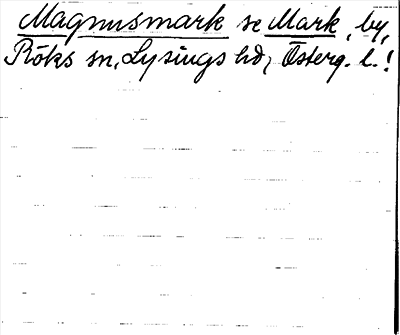 Magnusmark se Mark, by,
Röks sn, Lysings hd, Österg. l.!